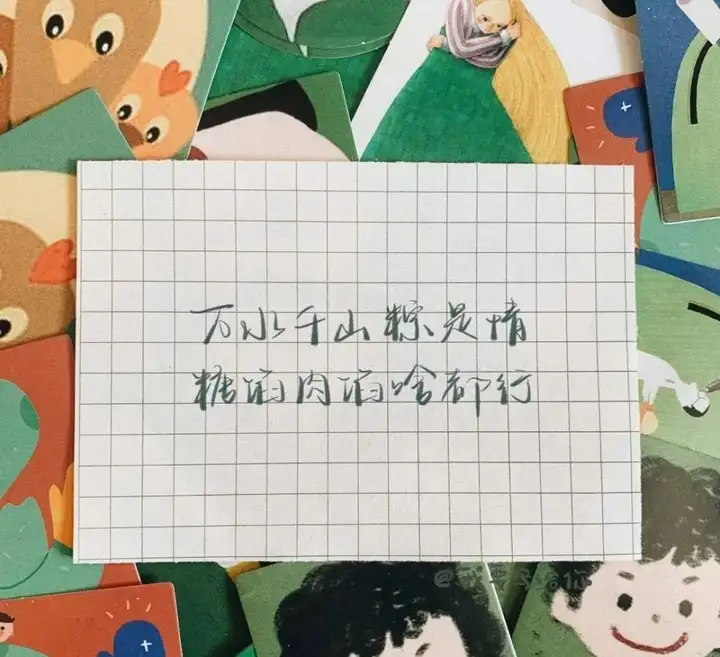 万水千山粽是情
糖馅肉馅啥都行